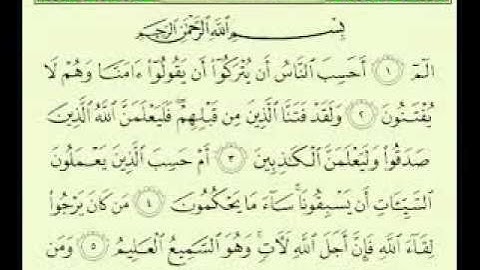 بِسْمِ ٱللَّهِ ٱلرَّحْمَٰنِ ٱلرَّحِيمِ
الٓمٓ ١ أَحَسِبَ ٱلنَّاسُ أَن يُتْرَكُوٓا۟ أَن يَقُولُوٓا۟ ءَامَنَّا وَهُمْ لَا
يُفْتَنُونَ ٢ وَلَقَدْ فَتَنَّا ٱلَّذِينَ مِن قَبْلِهِمْ ۖ فَلَيَعْلَمَنَّ ٱللَّهُ ٱلَّذِينَ
صَدَقُوا۟ وَلَيَعْلَمَنَّ ٱلْكَٰذِبِينَ ٣ أَمْ حَسِبَ ٱلَّذِينَ يَعْمَلُونَ
ٱلسَّيِّـَٔاتِ أَن يَسْبِقُونَا ۚ سَآءَ مَا يَحْكُمُونَ ٤ مَن كَانَ يَرْجُوا۟
لِقَآءَ ٱللَّهِ فَإِنَّ أَجَلَ ٱللَّهِ لَـَٔاتٍ ۚ وَهُوَ ٱلسَّمِيعُ ٱلْعَلِيمُ ٥ وَمَن